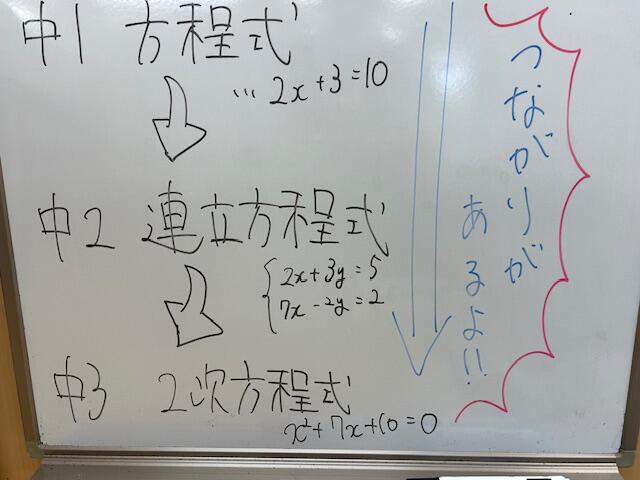 中1 方程式
… 2x+3=10
中2 連立方程式
2x+3y=5
7x-2y=2
中3 2次方程式
x²+7x+10=0
つながりが
あるよ!!